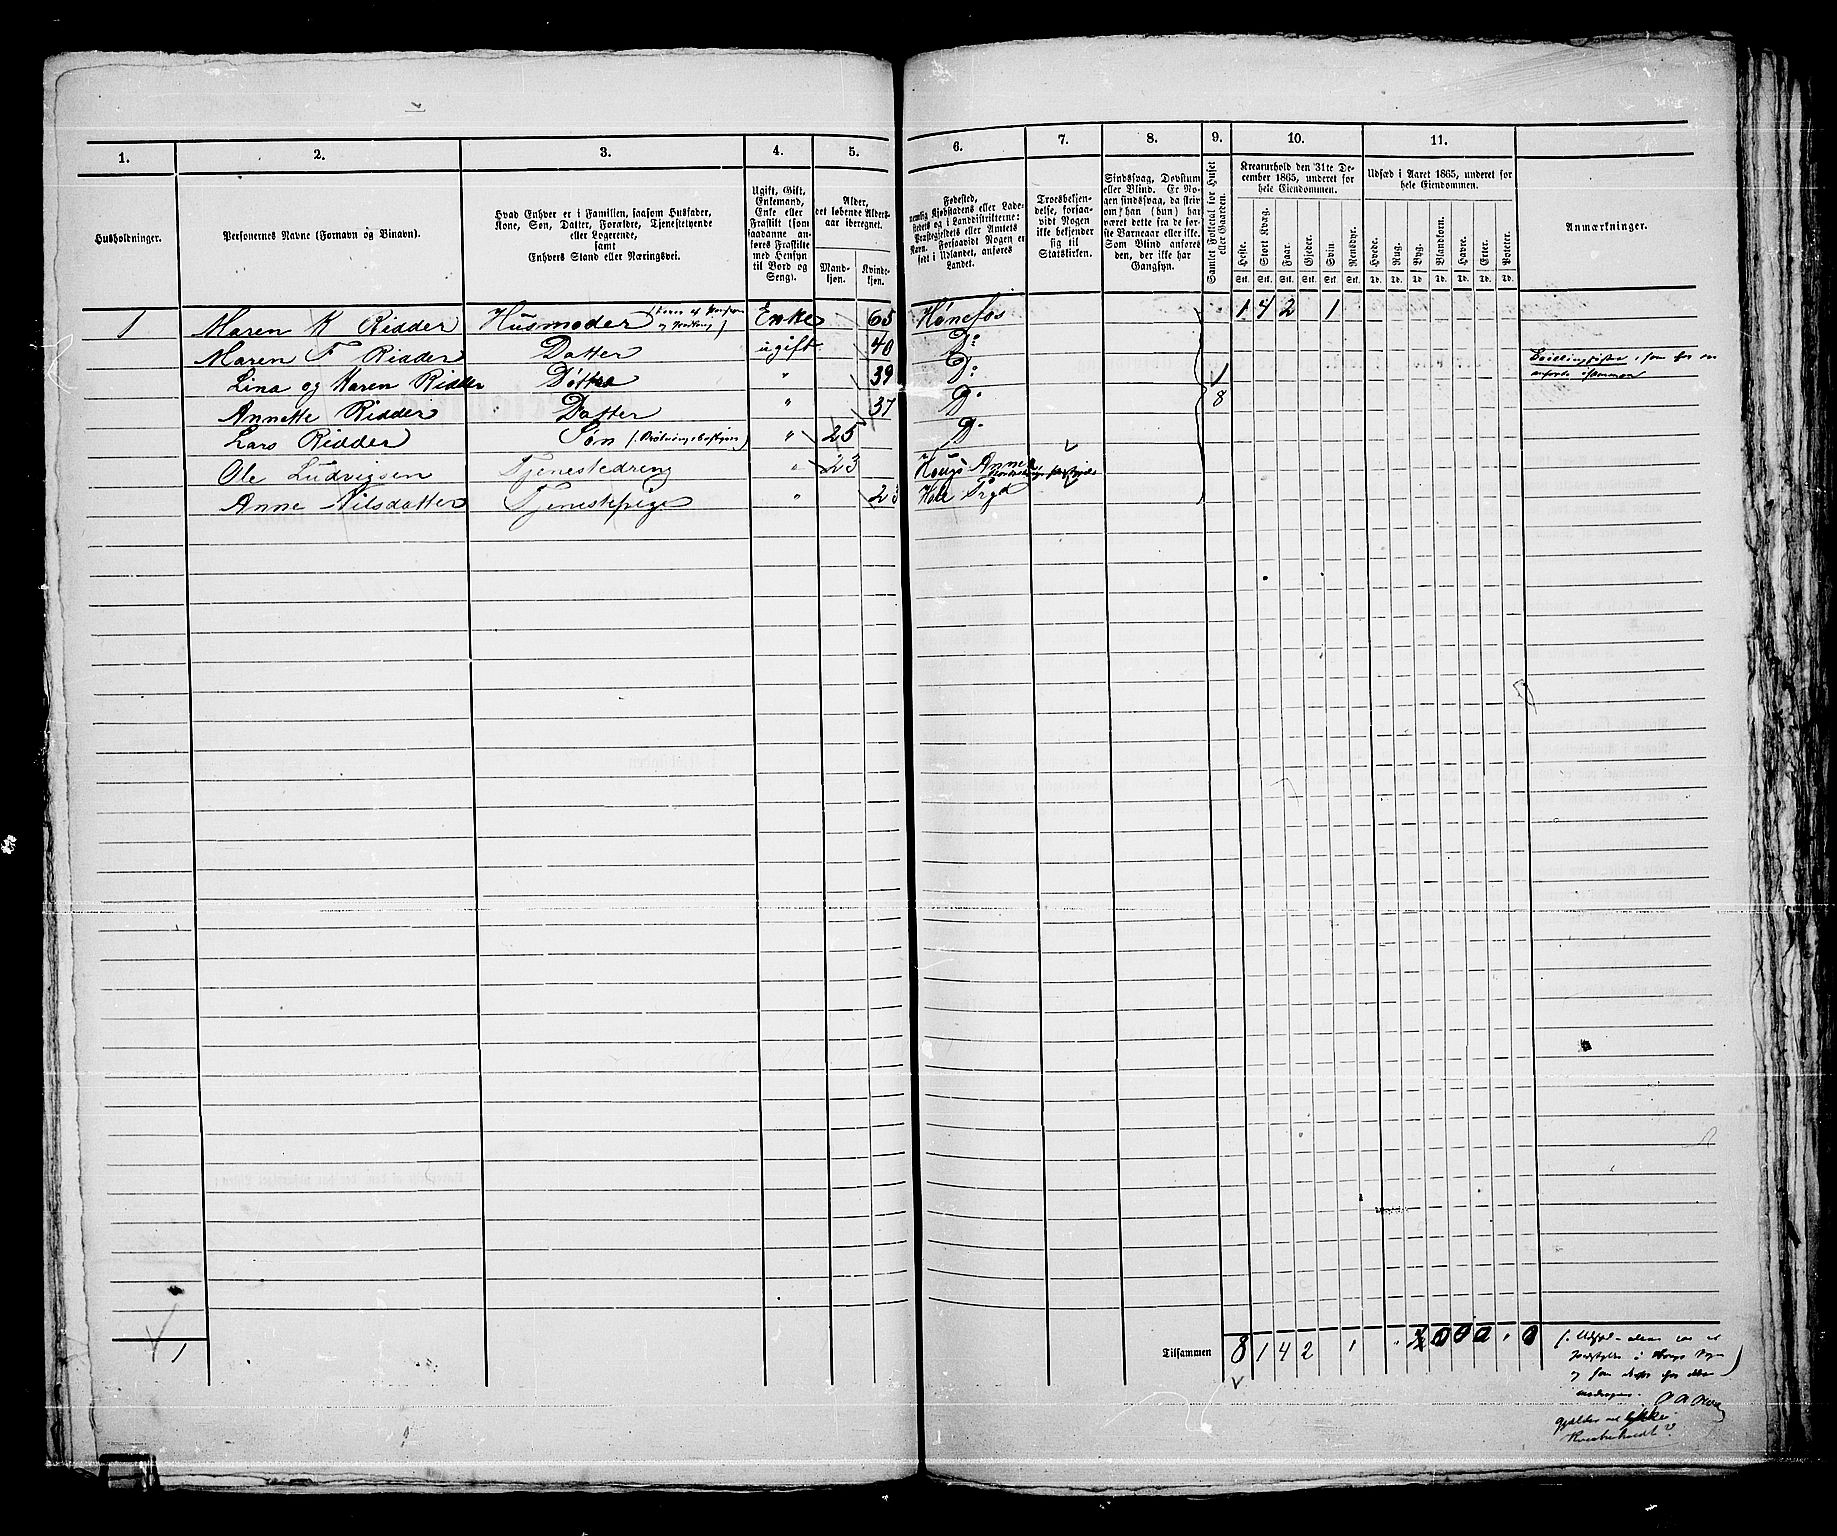 1. 2. 3. 4. 5. 6. 7. 8. 9. 10. 11.
Husholdninger.
Personernes Navne (Fornavn og Binavn).
Hvad Enhver er i Familien, saasom Husfader,
Kone, Søn, Datter, Forældre, Tjenestetyende
eller Logerende,
samt
Enhvers Stand eller Næringsvei.
Ugift, Gift,
Enkemand,
Enke eller
Fraskilt (som
saadanne an-
føres Fraskilte
med Hensyn
til Bord og
Seng).
Alder,
det løbende Alders-
aar iberegnet.
Mand-
kjøn.
Kvinde-
kjøn.
Fødested,
nemlig Kjøbstadens eller Lade-
stedets og i Landdistrikterne:
Præstegjeldets eller Amtets
Navn. Forsaavidt Nogen er
født i Udlandet, anføres
Landet.
Troesbekjen-
delse, forsaa-
vidt Nogen
ikke bekjender
sig til
Statskirken.
Sindssvag, Døvstum
eller Blind. Er No-
gen sindssvag, da skriv
om han (hun) har
været dette fra de før-
ste Barneaar eller ikke.
Som Blind anføres
den, der ikke har
Gangsyn.
Samlet Folketal for Huset
eller Gaarden.
Kreaturhold den 31te De-
cember 1865, underet for
hele Eiendommen.
Heste. Stort Kvæg. Faar. Gjeder. Svin. Rensdyr.
Stk. Stk. Stk. Stk. Stk. Stk.
Udsæd i Aaret 1865, underet for
hele Eiendommen.
Hvede. Rug. Byg. Blandkorn. Havre. Erter. Poteter.
Td. Td. Td. Td. Td. Td. Td.
Anmærkninger.
1 Maren K Ridder Husmoder Enke 65 Hønefos 1 4 2 1
Maren F Ridder Datter ugift 40 Do
Lina og Karen Ridder Døttre " 39 Do 1
Annette Ridder Datter " 37 Do 8
Lars Ridder Søn " 25 Do
Ole Ludvigsen Tjenestedreng " 23 Hougs Annex
Anne Nilsdatter Tjenestepige " 23 Hole Prgd
1 Tilsammen 8 1 4 2 1